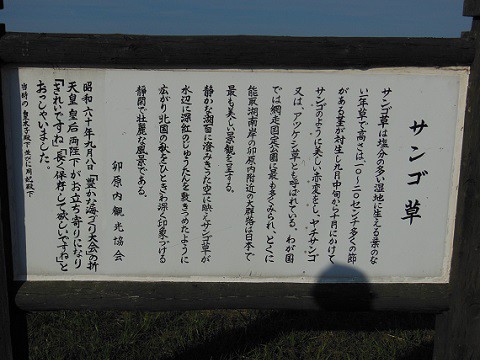 サンゴ草
サンゴ草は塩分の多い湿地に生える葉のな
い一年草で高さは、一〇〜二〇センチ多くの節
がある茎が対生した九月中旬から十月にかけて
サンゴのように美しい赤変をし、ヤチサンゴ
又は、アッケシ草とも呼ばれている。わが国
では網走国定公園に最も多くみられ、とくに
能取湖南岸の卯原内附近の大群落は日本で
最も美しい景観を呈する。
静かな湖面に澄みきった空に映えサンゴ草が
水辺に深紅のじゅうたんを敷きつめたように
広がり北国の秋をひときわ深く印象づける
静閑で壮麗な風景である。
卯原内観光協会
昭和六十年九月八日「豊かな海づくり大会」の折
天皇皇后両陛下がお立ち寄りになり
「きれいですね」「長く保存して欲しいですね」と
おっしゃいました。
当時の皇太子殿下並びに同妃殿下